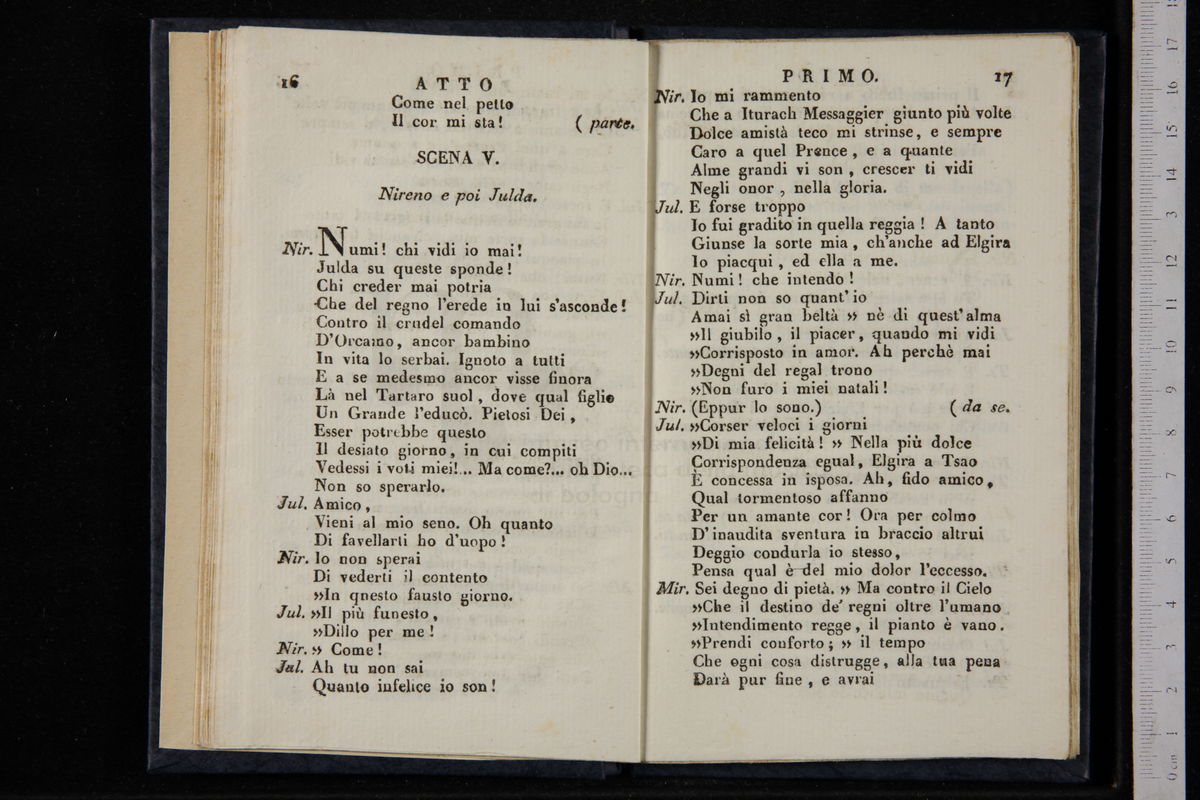 16
ATTO
Come nel petto
Il cor mi sta! ( parte.
SCENA V.
Nireno e poi Julda.
Nir. Numi! chi vidi io mai!
Julda su queste sponde!
Chi creder mai potria
Che del regno l'erede in lui s'asconde!
Contro il crudel comando
D'Orcamo, ancor bambino
In vita lo serbai. Ignoto a tutti
E a se medesmo ancor visse finora
Là nel Tartaro suol, dove qual figlio
Un Grande l'educò. Pietosi Dei,
Esser potrebbe questo
Il desiato giorno, in cui compiti
Vedessi i voti miei!... Ma come?... oh Dio...
Non so sperarlo.
Jul. Amico,
Vieni al mio seno. Oh quanto
Di favellarti ho d'uopo!
Nir. Io non sperai
Di vederti il contento
»In qnesto fausto giorno.
Jul. »Il più funesto,
»Dillo per me!
Nir. » Come!
Jul. Ah tu non sai
Quanto infelice io son!
PRIMO.
17
Nir. Io mi rammento
Che a Iturach Messaggier giunto più volte
Dolce amistà teco mi strinse, e sempre
Caro a quel Prence, e a quante
Alme grandi vi son, crescer ti vidi
Negli onor, nella gloria.
Jul. E forse troppo
Io fui gradito in quella reggia! A tanto
Giunse la sorte mia, ch'anche ad Elgira
Io piacqui, ed ella a me.
Nir. Numi! che intendo!
Jul. Dirti non so quant'io
Amai sì gran beltà » nè di quest'alma
»Il giubilo, il piacer, quando mi vidi
»Corrisposto in amor. Ah perchè mai
»Degni del regal trono
»Non furo i miei natali!
Nir. (Eppur lo sono.) ( da se.
Jul. »Corser veloci i giorni
»Di mia felicità! » Nella più dolce
Corrispondenza egual, Elgira a Tsao
È concessa in isposa. Ah, fido amico,
Qual tormentoso affanno
Per un amante cor! Ora per colmo
D'inaudita sventura in braccio altrui
Deggio condurla io stesso,
Pensa qual è del mio dolor l'eccesso.
Mir. Sei degno di pietà. » Ma contro il Cielo
»Che il destino de' regni oltre l'umano
»Intendimento regge, il pianto è vano.
»Prendi conforto; » il tempo
Che ogni cosa distrugge, alla tua pena
Darà pur fine, e avrai